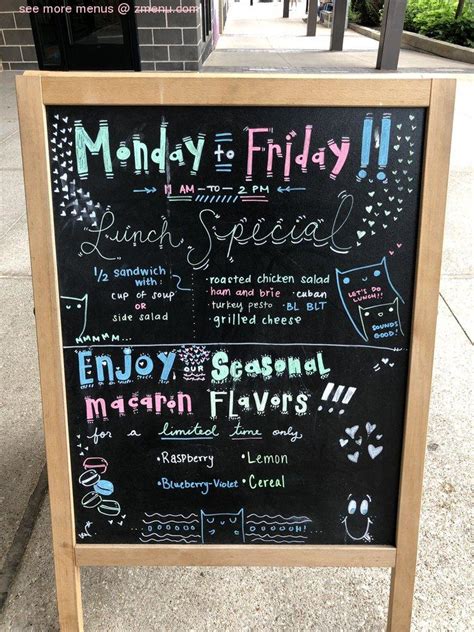 see more menus @ zmenu.com
Monday to Friday!!
11 AM - TO - 2 PM
Lunch Special
1/2 sandwich
with:
cup of soup
OR
side salad
• roasted chicken salad
• ham and brie • cuban
• turkey pesto • BL BLT
• grilled cheese
LET'S DO
LUNCH!!
SOUNDS
GOOD!
MMMMM...
Enjoy our Seasonal
macaron Flavors!!!
for a limited time only
• Raspberry • Lemon
• Blueberry-Violet • Cereal